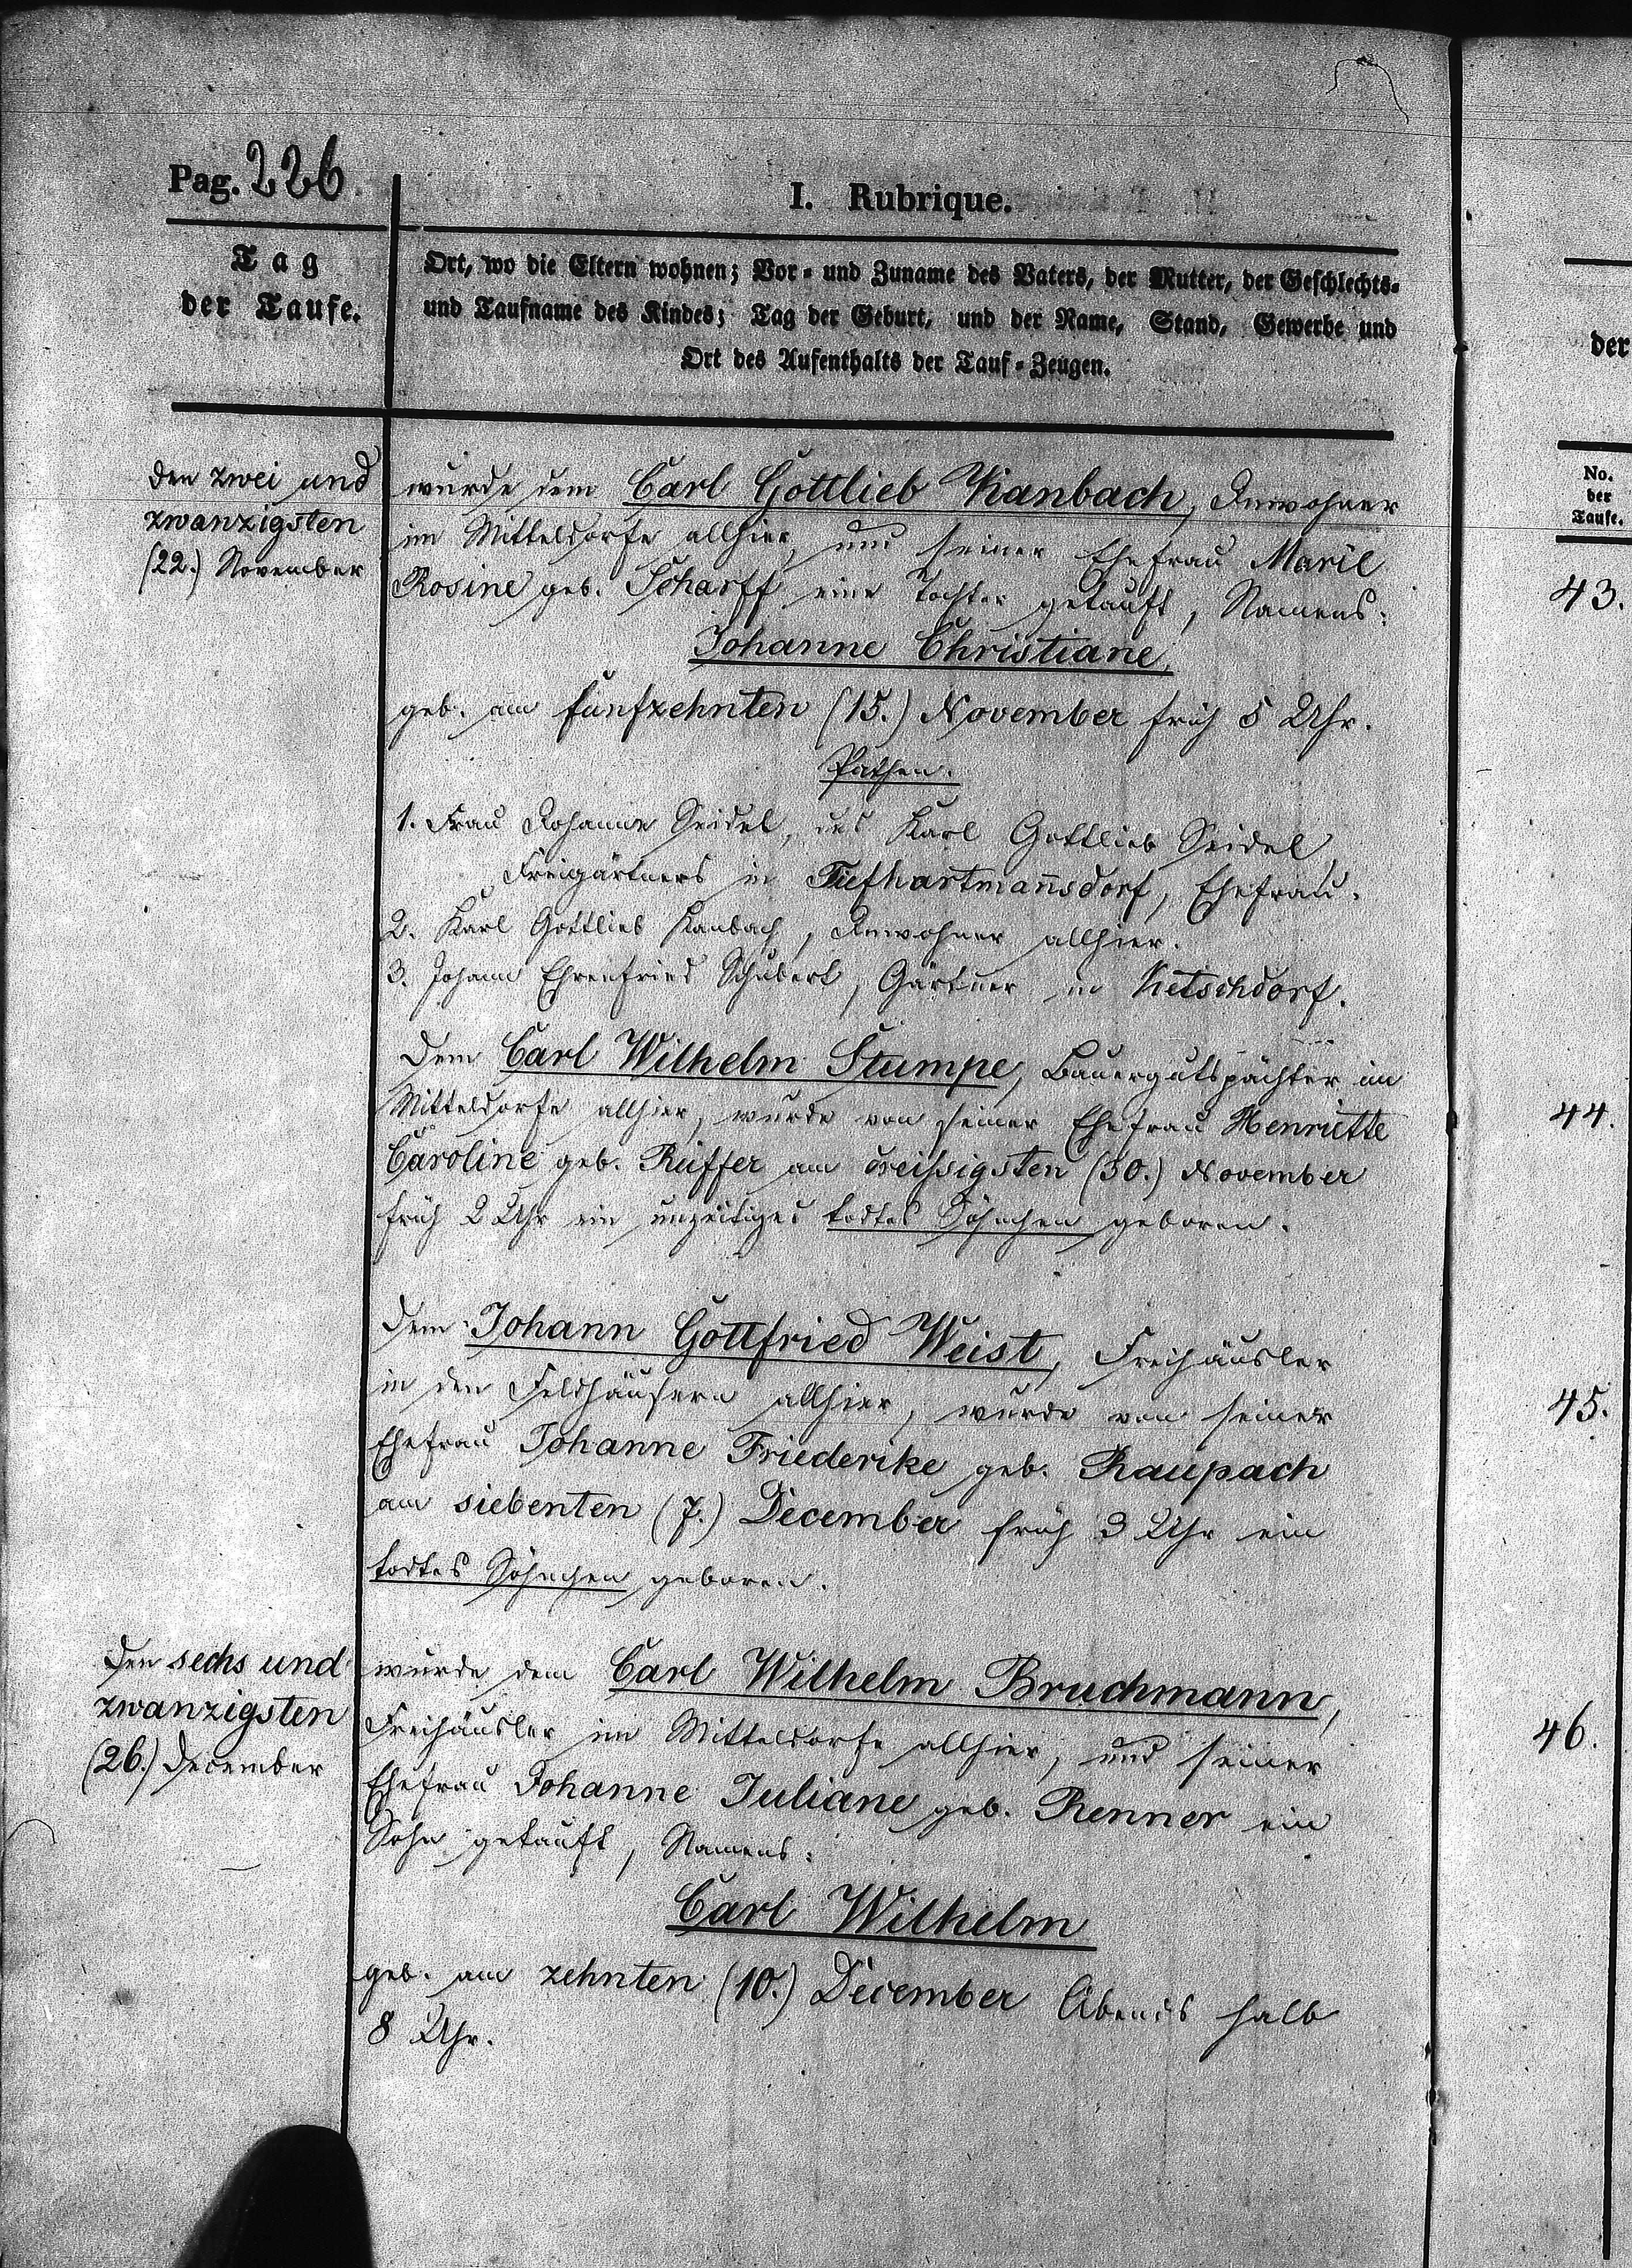 Pag. 226
I. Rubrique.
Tag
der Taufe.
Ort, wo die Eltern wohnen; Vor- und Zuname des Vaters, der Mutter, der Geschlechts-
und Taufname des Kindes; Tag der Geburt, und der Name, Stand, Gewerbe und
Ort des Aufenthalts der Tauf-Zeugen.
den zwei und
zwanzigsten
(22.) November
wurde dem Carl Gottlieb Kanbach, Inwohner
im Mitteldorfe allhier, und seiner Ehefrau Marie
Rosine geb. Scharff eine Tochter getauft, Namens:
Johanne Christiane,
geb. am fünfzehnten (15.) November früh 5 Uhr.
Pathen.
1. Frau Johanne Seidel, des Karl Gottlieb Seidel,
Freigärtners in Tiefhartmannsdorf, Ehefrau.
2. Karl Gottlieb Kanbach, Inwohner allhier.
3. Johann Ehrenfried Schubert, Gärtner in Ketschdorf.
Dem Carl Wilhelm Stumpe, Bauergutspächter im
Mitteldorfe allhier, wurde von seiner Ehefrau Henriette
Caroline geb. Rüffer am dreißigsten (30.) November
früh 2 Uhr ein unzeitiges todtes Söhnchen geboren.
Dem Johann Gottfried Weist, Freihäusler
in den Feldhäusern allhier, wurde von seiner
Ehefrau Johanne Friederike geb. Raupach
am siebenten (7.) December früh 3 Uhr ein
todtes Söhnchen geboren.
Den sechs und
zwanzigsten
(26.) December
wurde dem Carl Wilhelm Bruchmann,
Freihäusler im Mitteldorfe allhier, und seiner
Ehefrau Johanne Juliane geb. Renner ein
Sohn getauft, Namens:
Carl Wilhelm
geb. am zehnten (10.) December Abends halb
8 Uhr.
der
No.
der
Taufe.
43.
44.
45.
46.